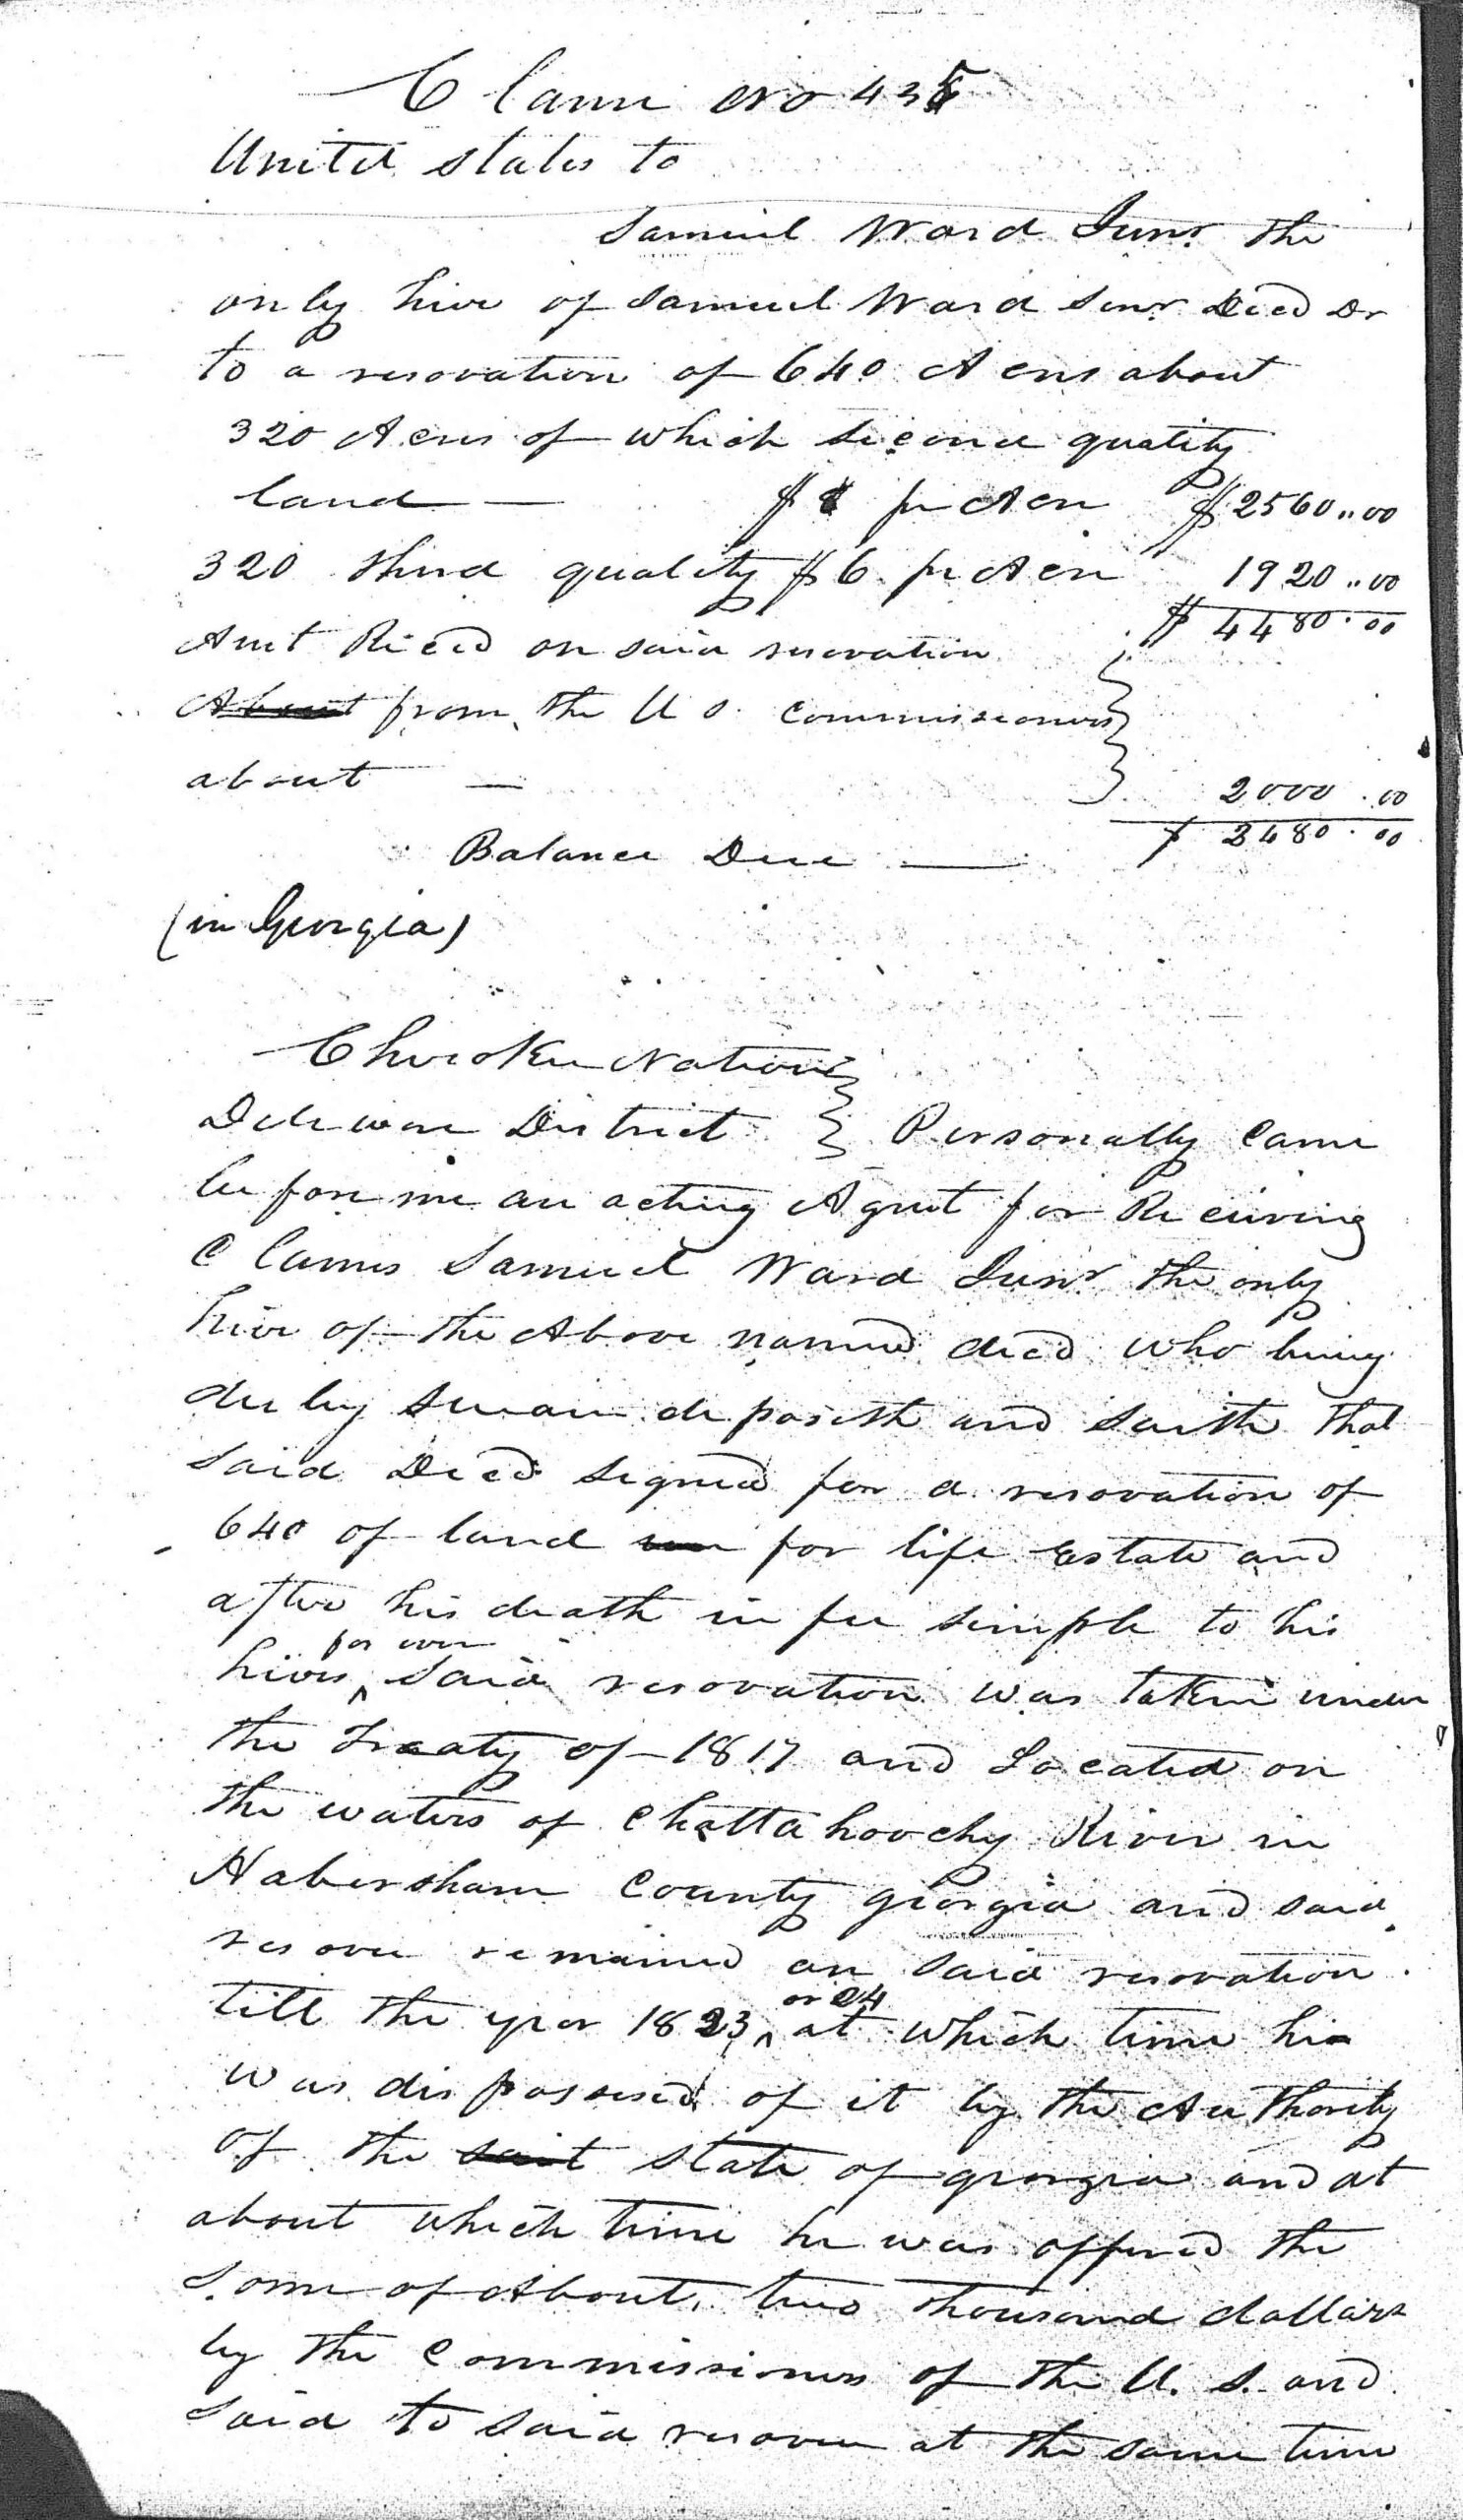 Claim No 435
United States to
Samuel Ward Junr the
only hire of Samuel Ward Senr Decd Dr
to a resovation of 640 Acres about
320 Acres of which second quality
land — $8 pr Acre $2560..00
320 third quality $6 pr Acre 1920..00
$4480.00
Amt Recd on said resovation
About from the U S. commissioners
about — 2000.00
Balance Due — $2480.00
(in Georgia)
Cherokee Nation
Deleware District } Personally came
before me an acting Agent for Receiving
Claims Samuel Ward Junr the only
hire of the Above named decd who being
duly swarn deposeth and saith that
said Decd signed for a resovation of
640 of land for life Estate and
after his death in fee simple to his
hires for ever Said resovation was taken under
the Treaty of 1817 and Located on
the waters of Chattahoochy River in
Habersham County georgia and said
resovee remained on said resovation
till the year 1823 or 24 at which time he
was dispossesed of it by the Authority
of the sait state of georgia and at
about which time he was offered the
some of About two thousand dollars
by the Commissioners of the U. S. and
said to said resovee at the same time